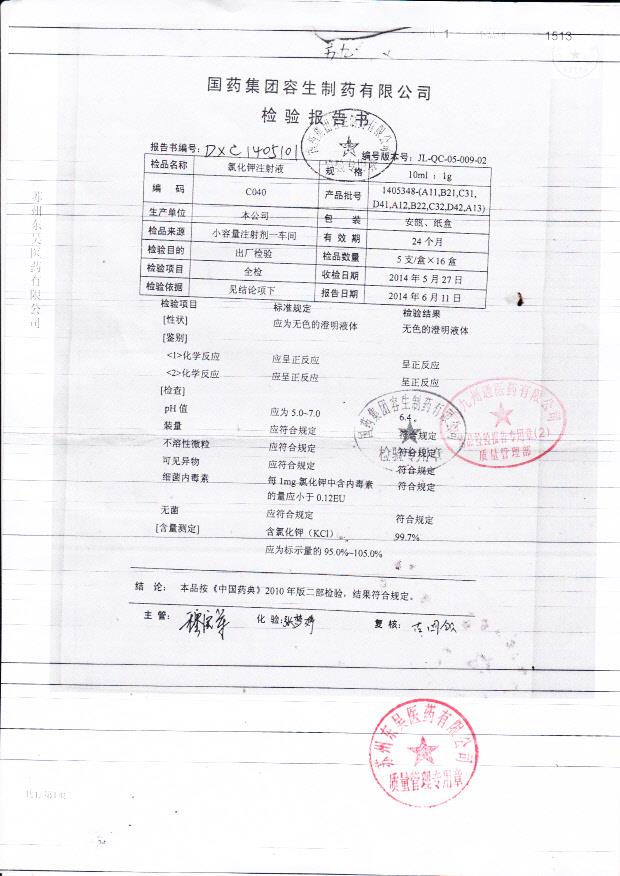 1
1513
国药集团容生制药有限公司
检验报告书
报告书编号: DXC1405101
编号版本号: JL-QC-05-009-02
检品名称 氯化钾注射液 规格 10ml : 1g
编码 C040 产品批号 1405348-(A11,B21,C31,
D41,A12,B22,C32,D42,A13)
生产单位 本公司 包装 安瓿、纸盒
检品来源 小容量注射剂一车间 有效期 24个月
检验目的 出厂检验 检品数量 5支/盒×16盒
检验项目 全检 收检日期 2014年5月27日
检验依据 见结论项下 报告日期 2014年6月11日
检验项目 标准规定 检验结果
[性状] 应为无色的澄明液体 无色的澄明液体
[鉴别]
<1>化学反应 应呈正反应 呈正反应
<2>化学反应 应呈正反应 呈正反应
[检查]
pH值 应为5.0~7.0 6.4
装量 应符合规定 符合规定
不溶性微粒 应符合规定 符合规定
可见异物 应符合规定 符合规定
细菌内毒素 每1mg氯化钾中含内毒素 符合规定
的量应小于0.12EU
无菌 应符合规定 符合规定
[含量测定] 含氯化钾(KCl) 99.7%
应为标示量的95.0%~105.0%
结论: 本品按《中国药典》2010年版二部检验,结果符合规定。
主管: 化验: 复核:
国药集团容生制药有限公司
检验专用章
九州通医药有限公司
检验报告专用章(2)
质量管理部
苏州东吴医药有限公司
苏州东吴医药有限公司
质量管理专用章